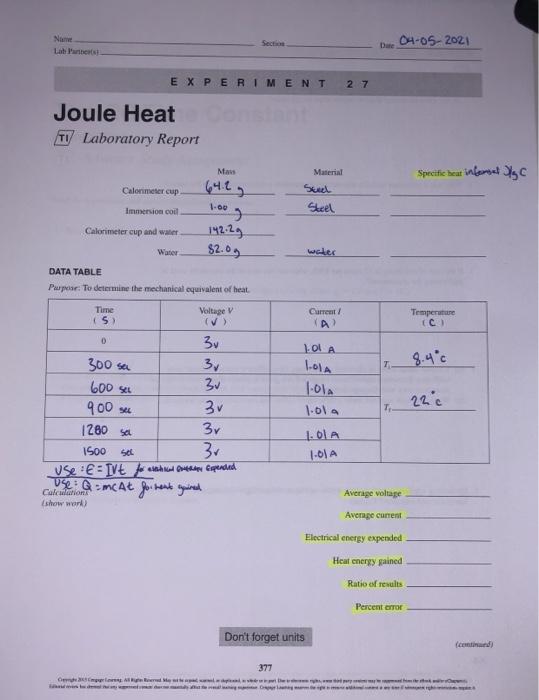 Name Section Date 04-05-2021
Lab Partner(s)
EXPERIMENT 27
Joule Heat
TI Laboratory Report
Mass Material Specific heat internet J/g C
Calorimeter cup 64.2 g Steel
Immersion coil 1.00 g Steel
Calorimeter cup and water 142.2g
Water 82.0g water
DATA TABLE
Purpose: To determine the mechanical equivalent of heat.
Time Voltage V Current I Temperature
(S) (V) (A) (C)
0 3v 1.01 A
300 sec 3v 1.01A Ti 8.4°c
600 sec 3v 1.01A
900 sec 3v 1.01a Tf 22°c
1200 sec 3v 1.01A
1500 sec 3v 1.01A
USE: E=IVt for expended
USE: Q=mcΔt for heat gained
Calculations
(show work)
Average voltage
Average current
Electrical energy expended
Heat energy gained
Ratio of results
Percent error
Don't forget units
(continued)
377